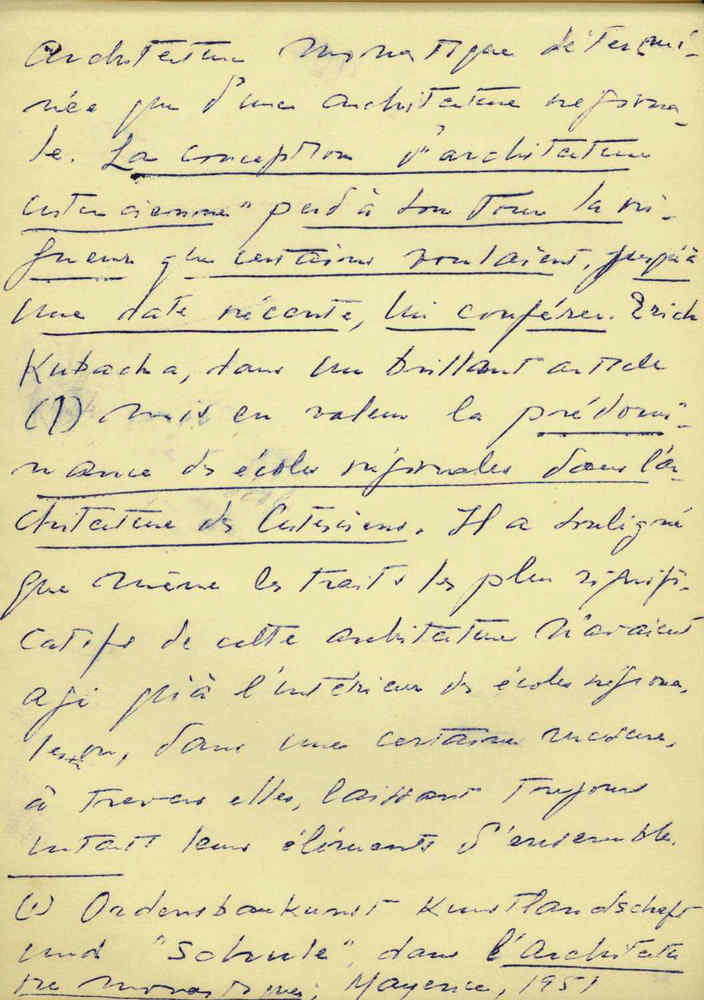 architecture monastique détermi-
née que d'une architecture regiona-
le. La conception d'"architecture
cistercienne" perd à son tour la ri-
gueur que certains voulaient, jusqu'à
une date récente, lui conférer. Erich
Kubach a, dans un brillant article
(1) mis en valeur la prédomi-
nance des écoles régionales dans l'ar-
chitecture des Cisterciens. Il a souligné
que même les traits les plus signifi-
catifs de cette architecture n'avaient
agi qu'à l'intérieur des écoles régiona-
les ou, dans une certaine mesure,
à travers elles, laissant toujours
intact leurs éléments d'ensemble.
(1) Ordensbaukunst Kunstlandschaft
und "Schule", dans l'Architectu-
re monastique, Mayence, 1951